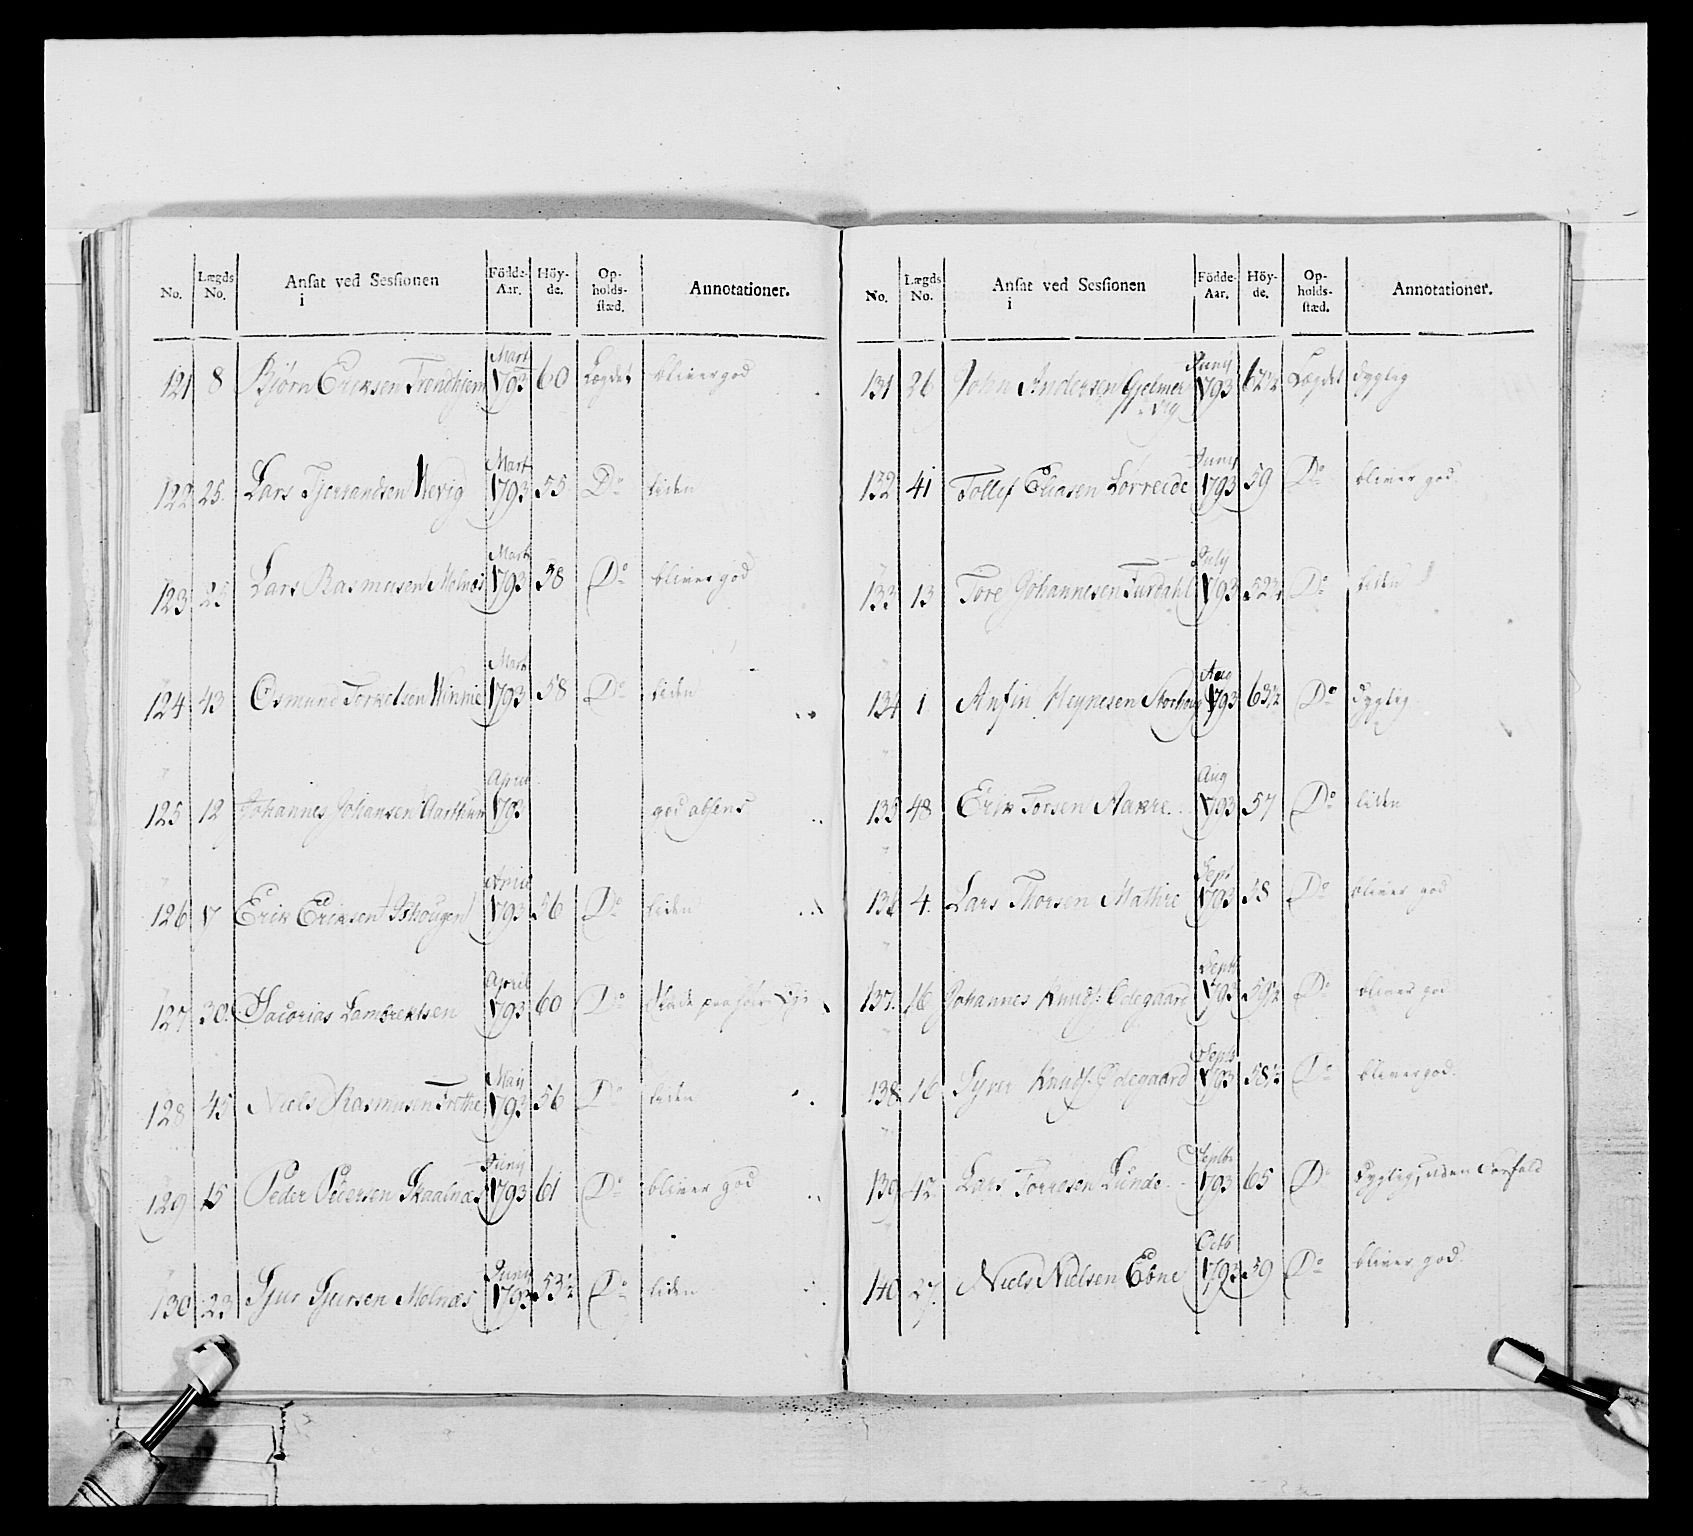 No. Lægds No. Ansat ved Sessionen i Födde-Aar. Höy-de. Op-holds-stæd. Annotationer.
121 8 Björn Eriksen Trondhjem Mart 1793 60 Lægdet bliver god
122 25. Lars Tjerandsen Mart 1793 55 Do liden
123 25 Lars Rasmusen Molnæs Mart 1793 58 Do bliver god
124 43 Osmund Torkelsen Winnie Mart 1793 58 Do liden
125 12 Johannes Johansen April 1793 god absens
126 7 Erik Eriksen April 1793 56 Do liden
127 30. Lambrektsen April 1793 60 Do
128 45 Niels Rasmusen Maij 1793 56 Do liden
129 15 Peder Pedersen Skaalnæs Junij 1793 61 Do bliver god
130 23 Sjur Sjursen Molnæs Junij 1793 53½ Do liden
No. Lægds No. Ansat ved Sessionen i Födde-Aar. Höy-de. Op-holds-stæd. Annotationer.
131 26 John Andersen Gjelmervig Junij 1793 62½ Lægdet dygtig
132 41 Tollef Eliasen Lorreide Junij 1793 59 Do bliver god.
133 13 Tore Johannesen Furdahl July 1793 52½ Do liden
134 1 Anfin Heynesen Aug 1793 63½ Do dygtig
135 48 Erik Torsen Aakre. Aug 1793 57 Do liden
136 4. Lars Thorsen Mathre Sept 1793 58 Do bliver god
137. 16 Johannes Knuds: Ödegaard Septb 1793 59½ Do bliver god
138 16 Knuds: Ödegaard Septb 1793 58½ Do bliver god.
139 42. Lars Lunde Septbr 1793 65 Do dygtig,
140 27. Niels Nielsen Ebne Octb 1793 59 Do bliver god.